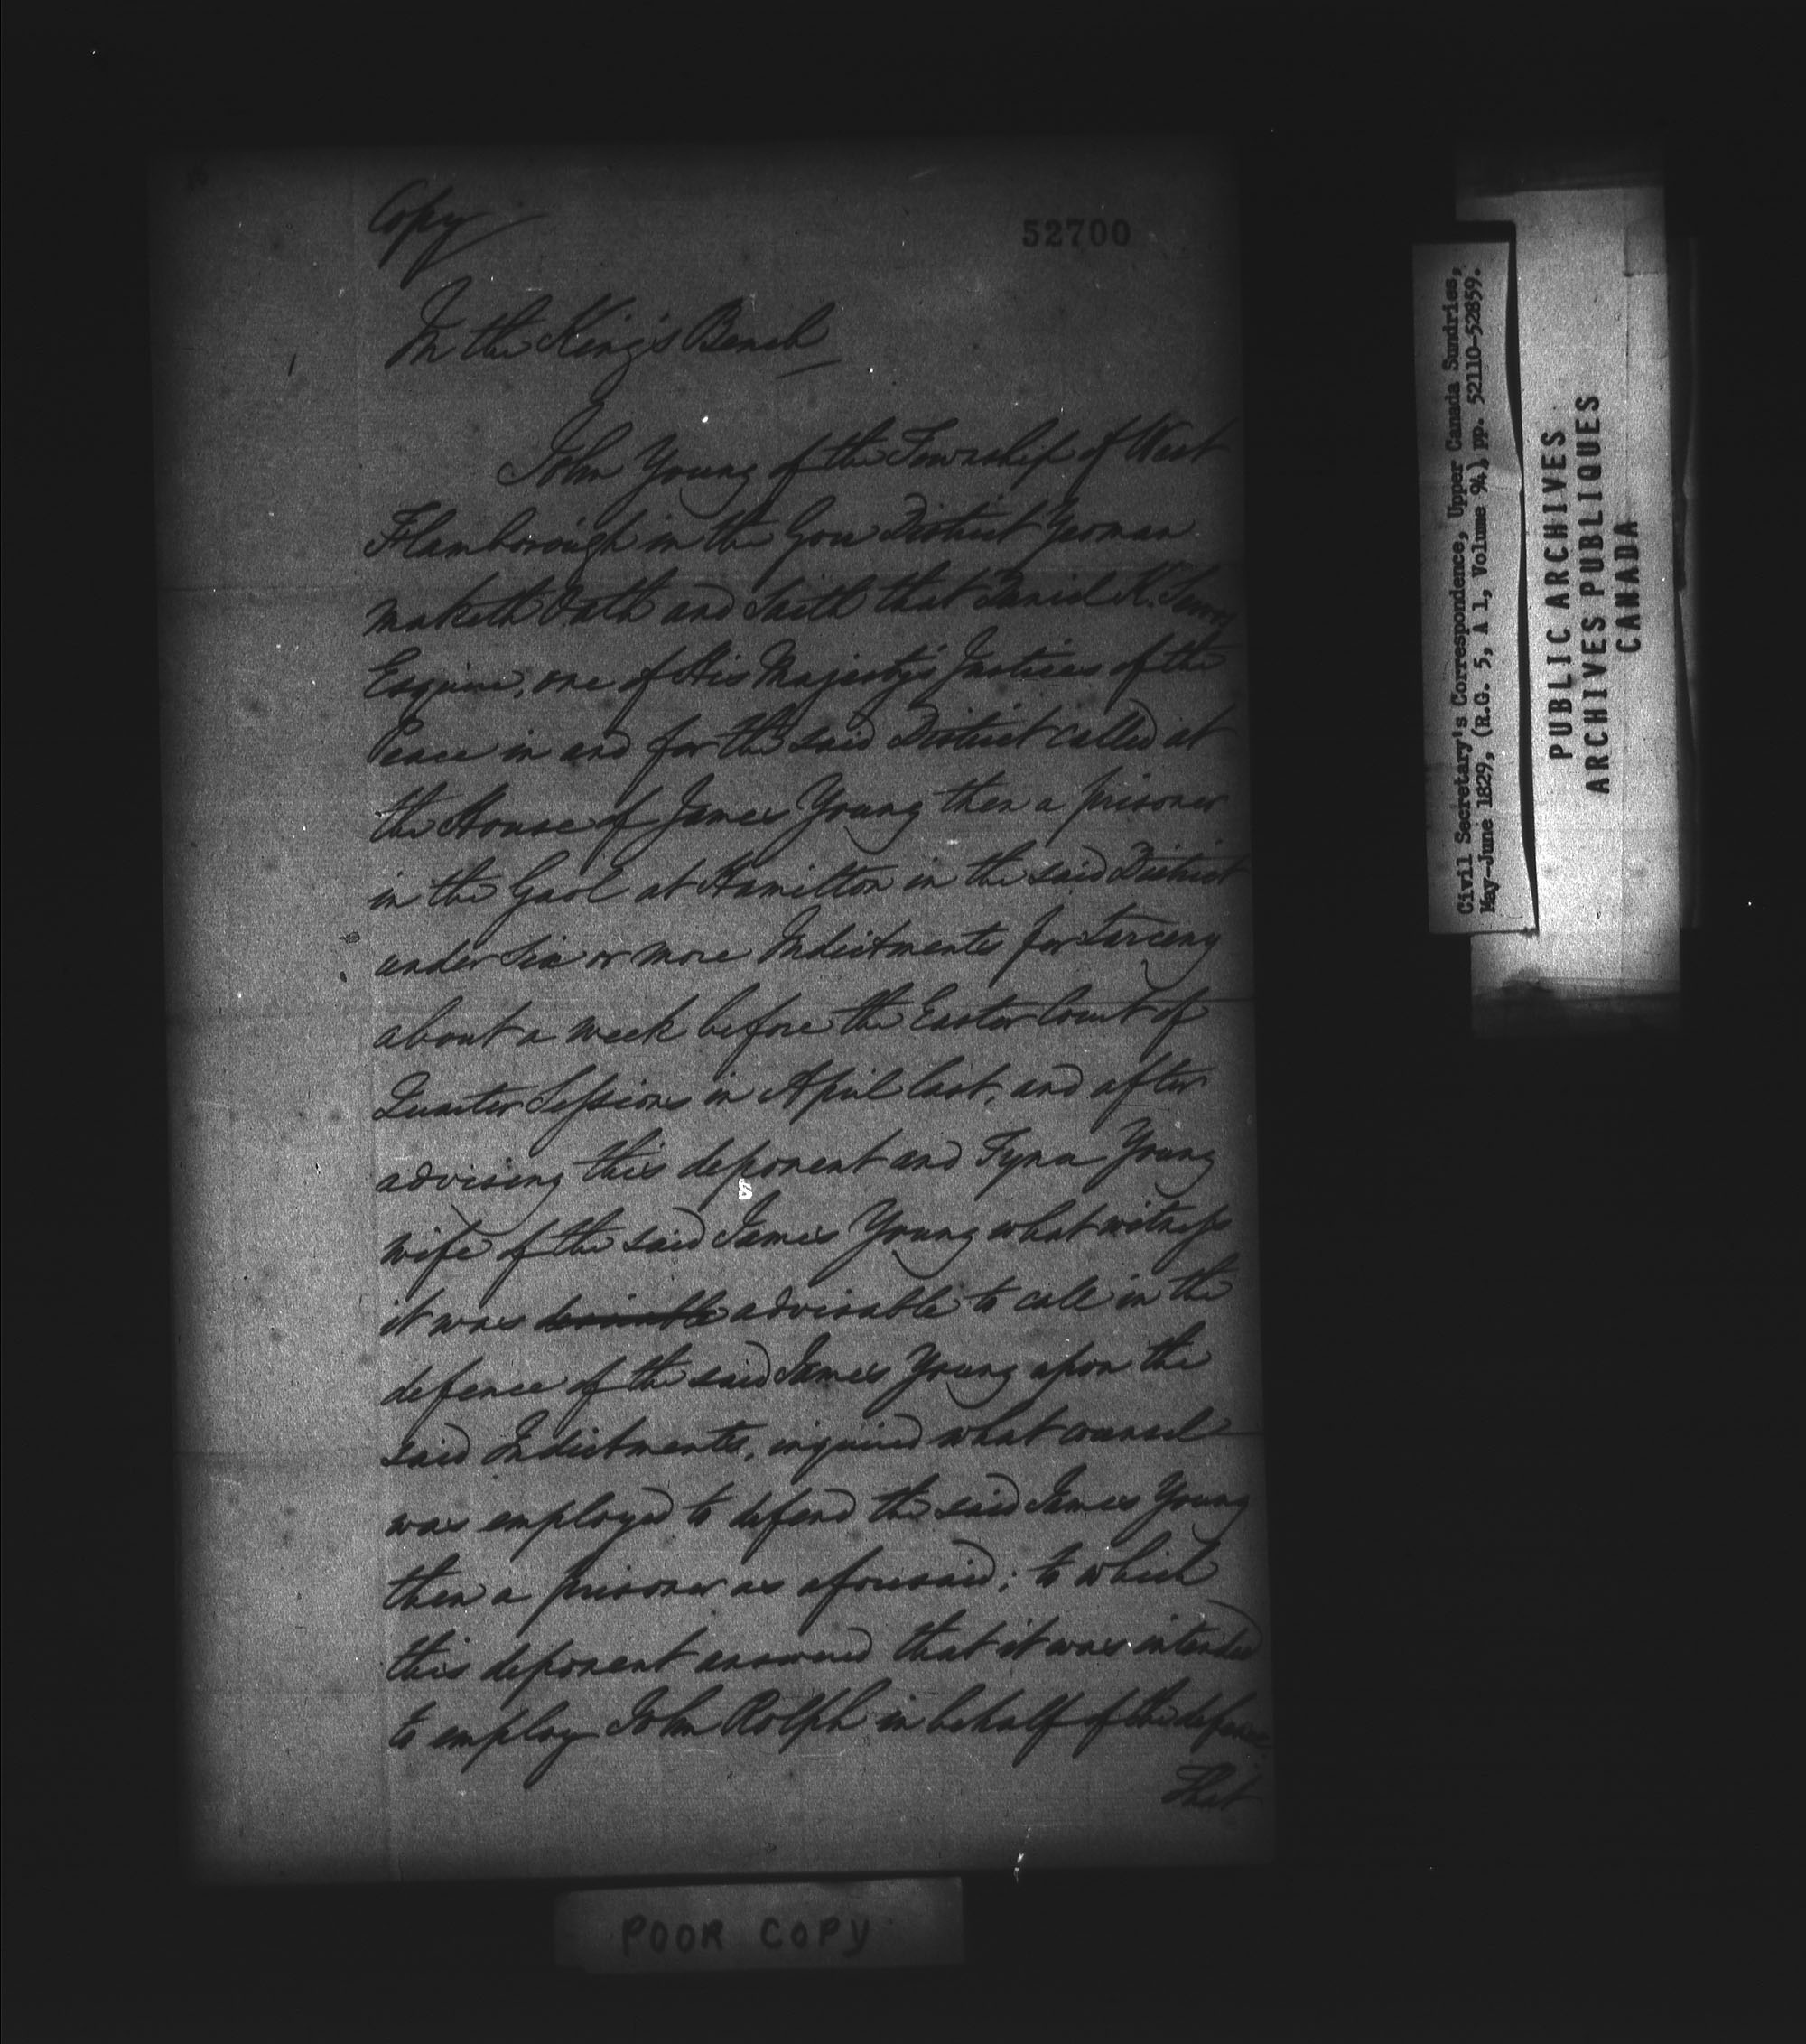 Copy
52700
In the King's Bench
John Young of the Township of West
Flamborough in the Gore District Yeoman
maketh Oath and Saith that Daniel K. Servos
Esquire, one of His Majesty's Justices of the
Peace in and for the said District called at
the House of James Young then a prisoner
in the Gaol at Hamilton in the said District
under six or more Indictments for Larceny
about a week before the Easter Court of
Quarter Sessions in April last, and after
advising this deponent and Tyna Young
wife of the said James Young what witness
it was desirable advisable to call in the
defence of the said James Young upon the
said Indictments, inquired what counsel
was employed to defend the said James Young
then a prisoner as aforesaid; to which
this deponent answered that it was intended
to employ John Rolph in behalf of the defence.
That
POOR COPY
Civil Secretary's Correspondence, Upper Canada Sundries,
May-June 1829, (R.G. 5, A 1, Volume 94) pp. 52110-52859.
PUBLIC ARCHIVES
ARCHIVES PUBLIQUES
CANADA